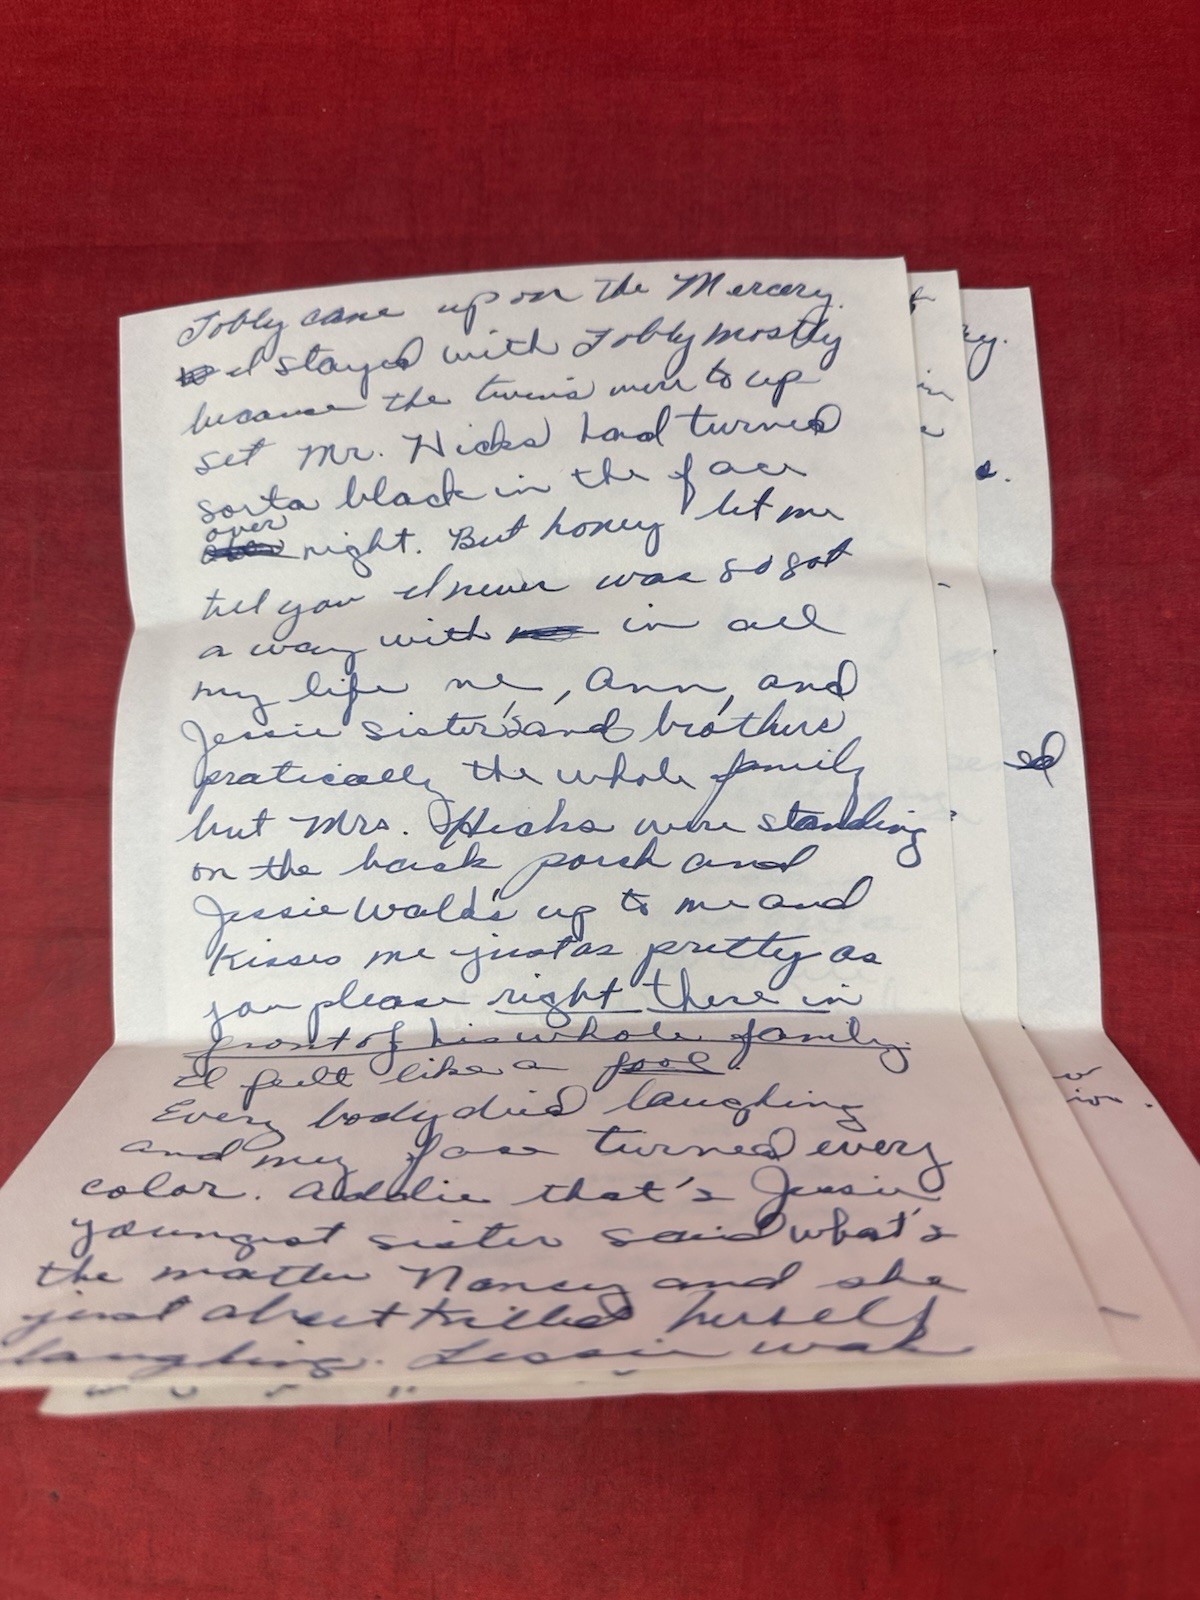 Tobly came up on the Mercery.
I stayed with Tobly mostly
because the twins were to up
set Mr. Hicks had turned
sorta black in the face
over night. But honey let me
tel you I never was so got
a way with in all
my life me, Ann, and
Jessie sister's and brothers
pratically the whole family
but Mrs. Hicks were standing
on the back porch and
Jessie Walds up to me and
Kisses me just as pretty as
you please right there in
front of his whole family.
I felt like a fool.
Every body died laughing
and my face turned every
color. Addie that's Jessie
youngest sister said what's
the matter Nancy and she
just about killed herself
laughing. Jessie was